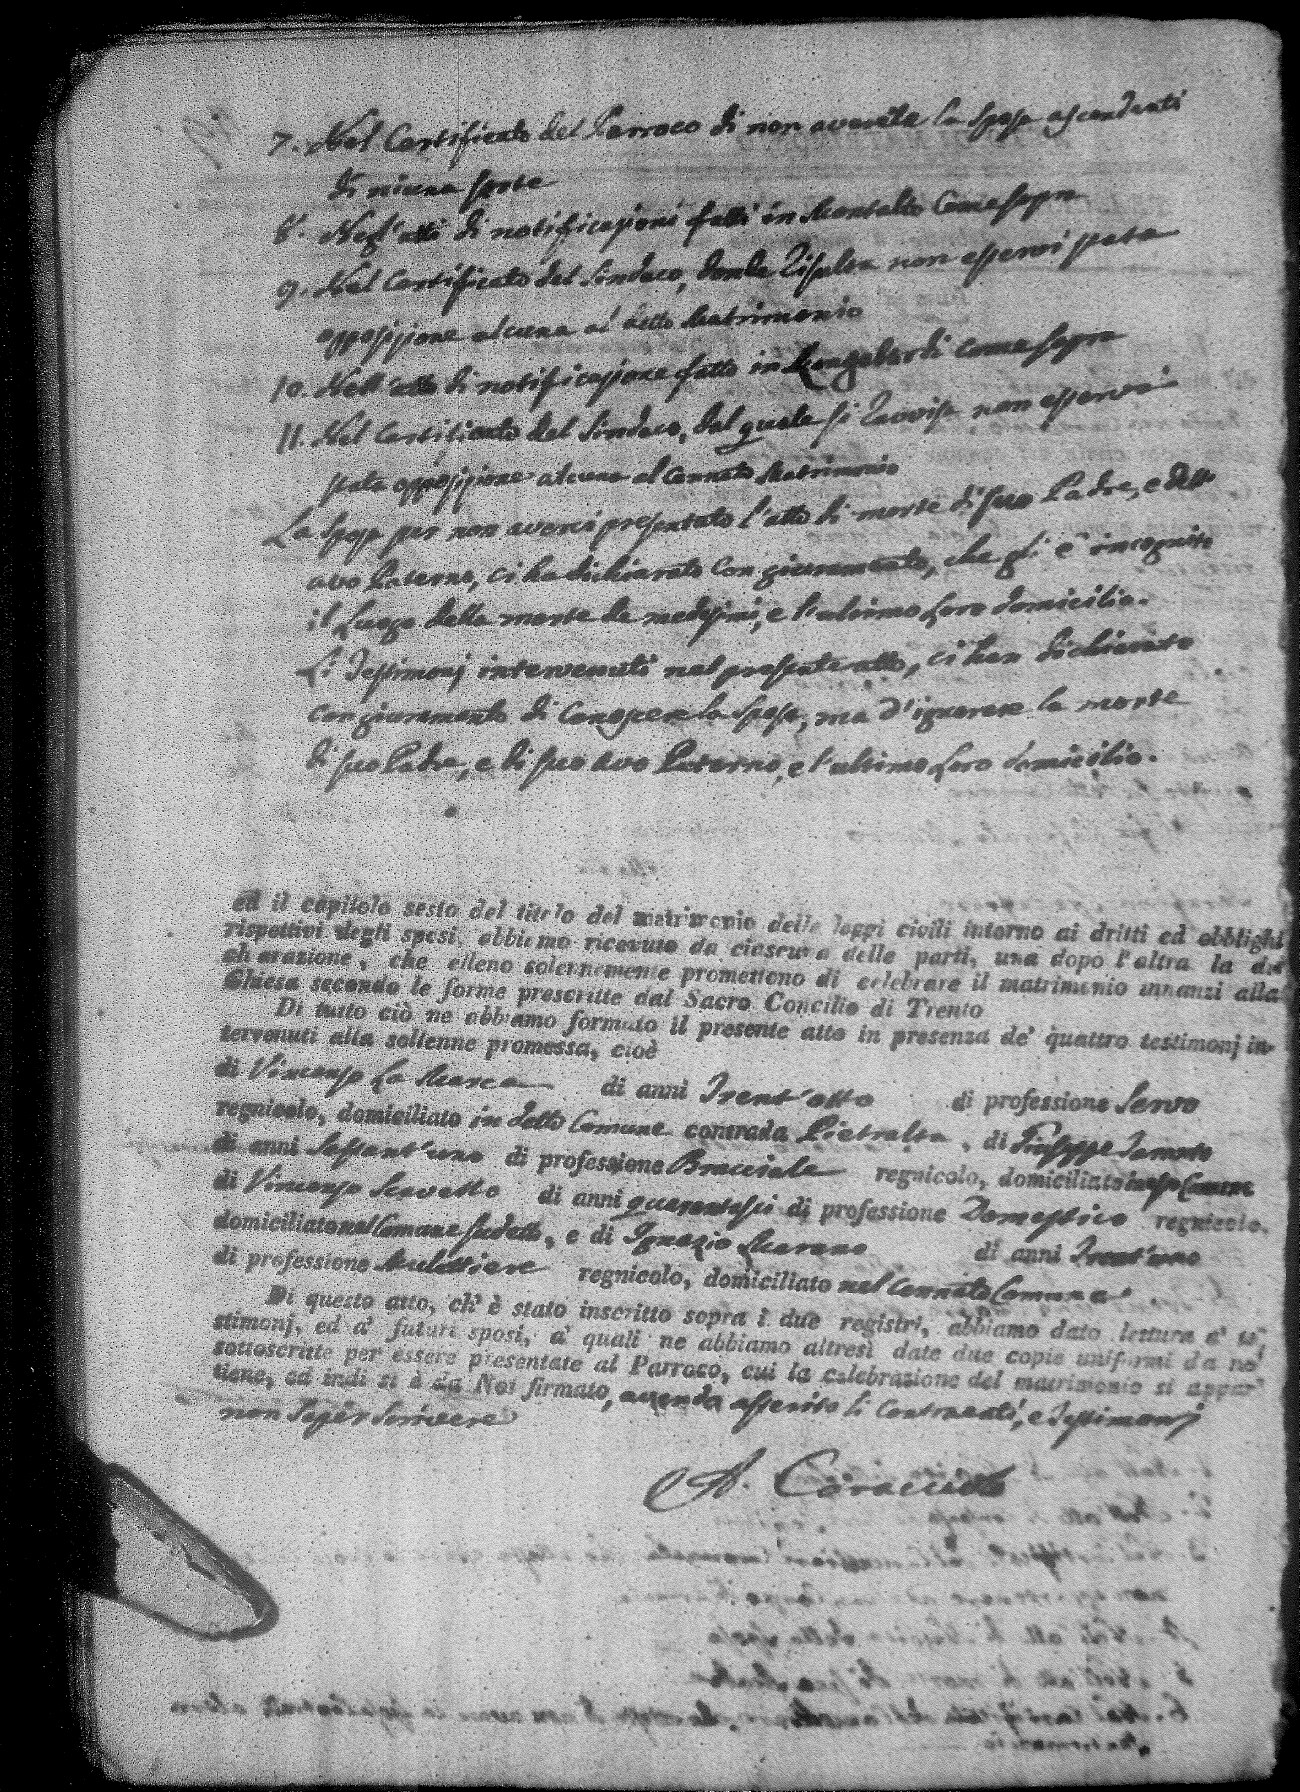 7. Nel Certificato del Parroco di non averela la sposa ascendenti
di niuna sorte
8. Negl'atti di notificazioni fatti in Montalto Come sopra
9. Nel Certificato del Sindaco, donde risulta non esservi stata
opposizione alcuna al detto Matrimonio
10. Nell'atto di notificazione fatto in Mongalardi come sopra
11. Nel Certificato del Sindaco, dal quale si ravvisa non esservi
stata opposizione alcuna al Cennato Matrimonio
La sposa per non averci presentato l'atto di morte di suo Padre, e dell'
avo Paterno, ci ha dichiarato con giuramento, che gl'è incognito
il Luogo della morte de medesimi, e l'ultimo Loro domicilio.
Li Testimonj intervenuti nel presente atto, ci han dichiarato
con giuramento di Conoscere la sposa, ma d'ignorare la morte
di suo Padre, e di suo avo Paterno, e l'ultimo Loro domicilio.
ed il capitolo sesto del titolo del matrimonio delle leggi civili intorno ai dritti ed obblighi
rispettivi degli sposi, abbiamo ricevuto da ciascuna delle parti, una dopo l'altra la di-
chiarazione, che elleno solennemente promettono di celebrare il matrimonio innanzi alla
Chiesa secondo le forme prescritte dal Sacro Concilio di Trento
Di tutto ciò ne abbiamo formato il presente atto in presenza de' quattro testimonj in-
tervenuti alla sollenne promessa, cioè
di Vincenzo La Marca di anni Trent'otto di professione Servo
regnicolo, domiciliato in detto Comune contrada Pietralta, di Giuseppe
di anni Sessant'uno di professione Bracciale regnicolo, domiciliato in esso Comune
di Vincenzo Scavello di anni quarantasei di professione Domestico regnicolo,
domiciliato nel Comune sudetto, e di Ignazio Marano di anni Trent'uno
di professione Mulattiere regnicolo, domiciliato nel Cennato Comune.
Di questo atto, ch'è stato inscritto sopra i due registri, abbiamo dato lettura a' te-
stimonj, ed a' futuri sposi, a' quali ne abbiamo altresì date due copie uniformi da noi
sottoscritte per essere presentate al Parroco, cui la celebrazione del matrimonio si appar-
tiene, ed indi si è da Noi firmato, avendo asserito li Contraenti, e Testimonj
non saper scrivere
A. Caracciolo